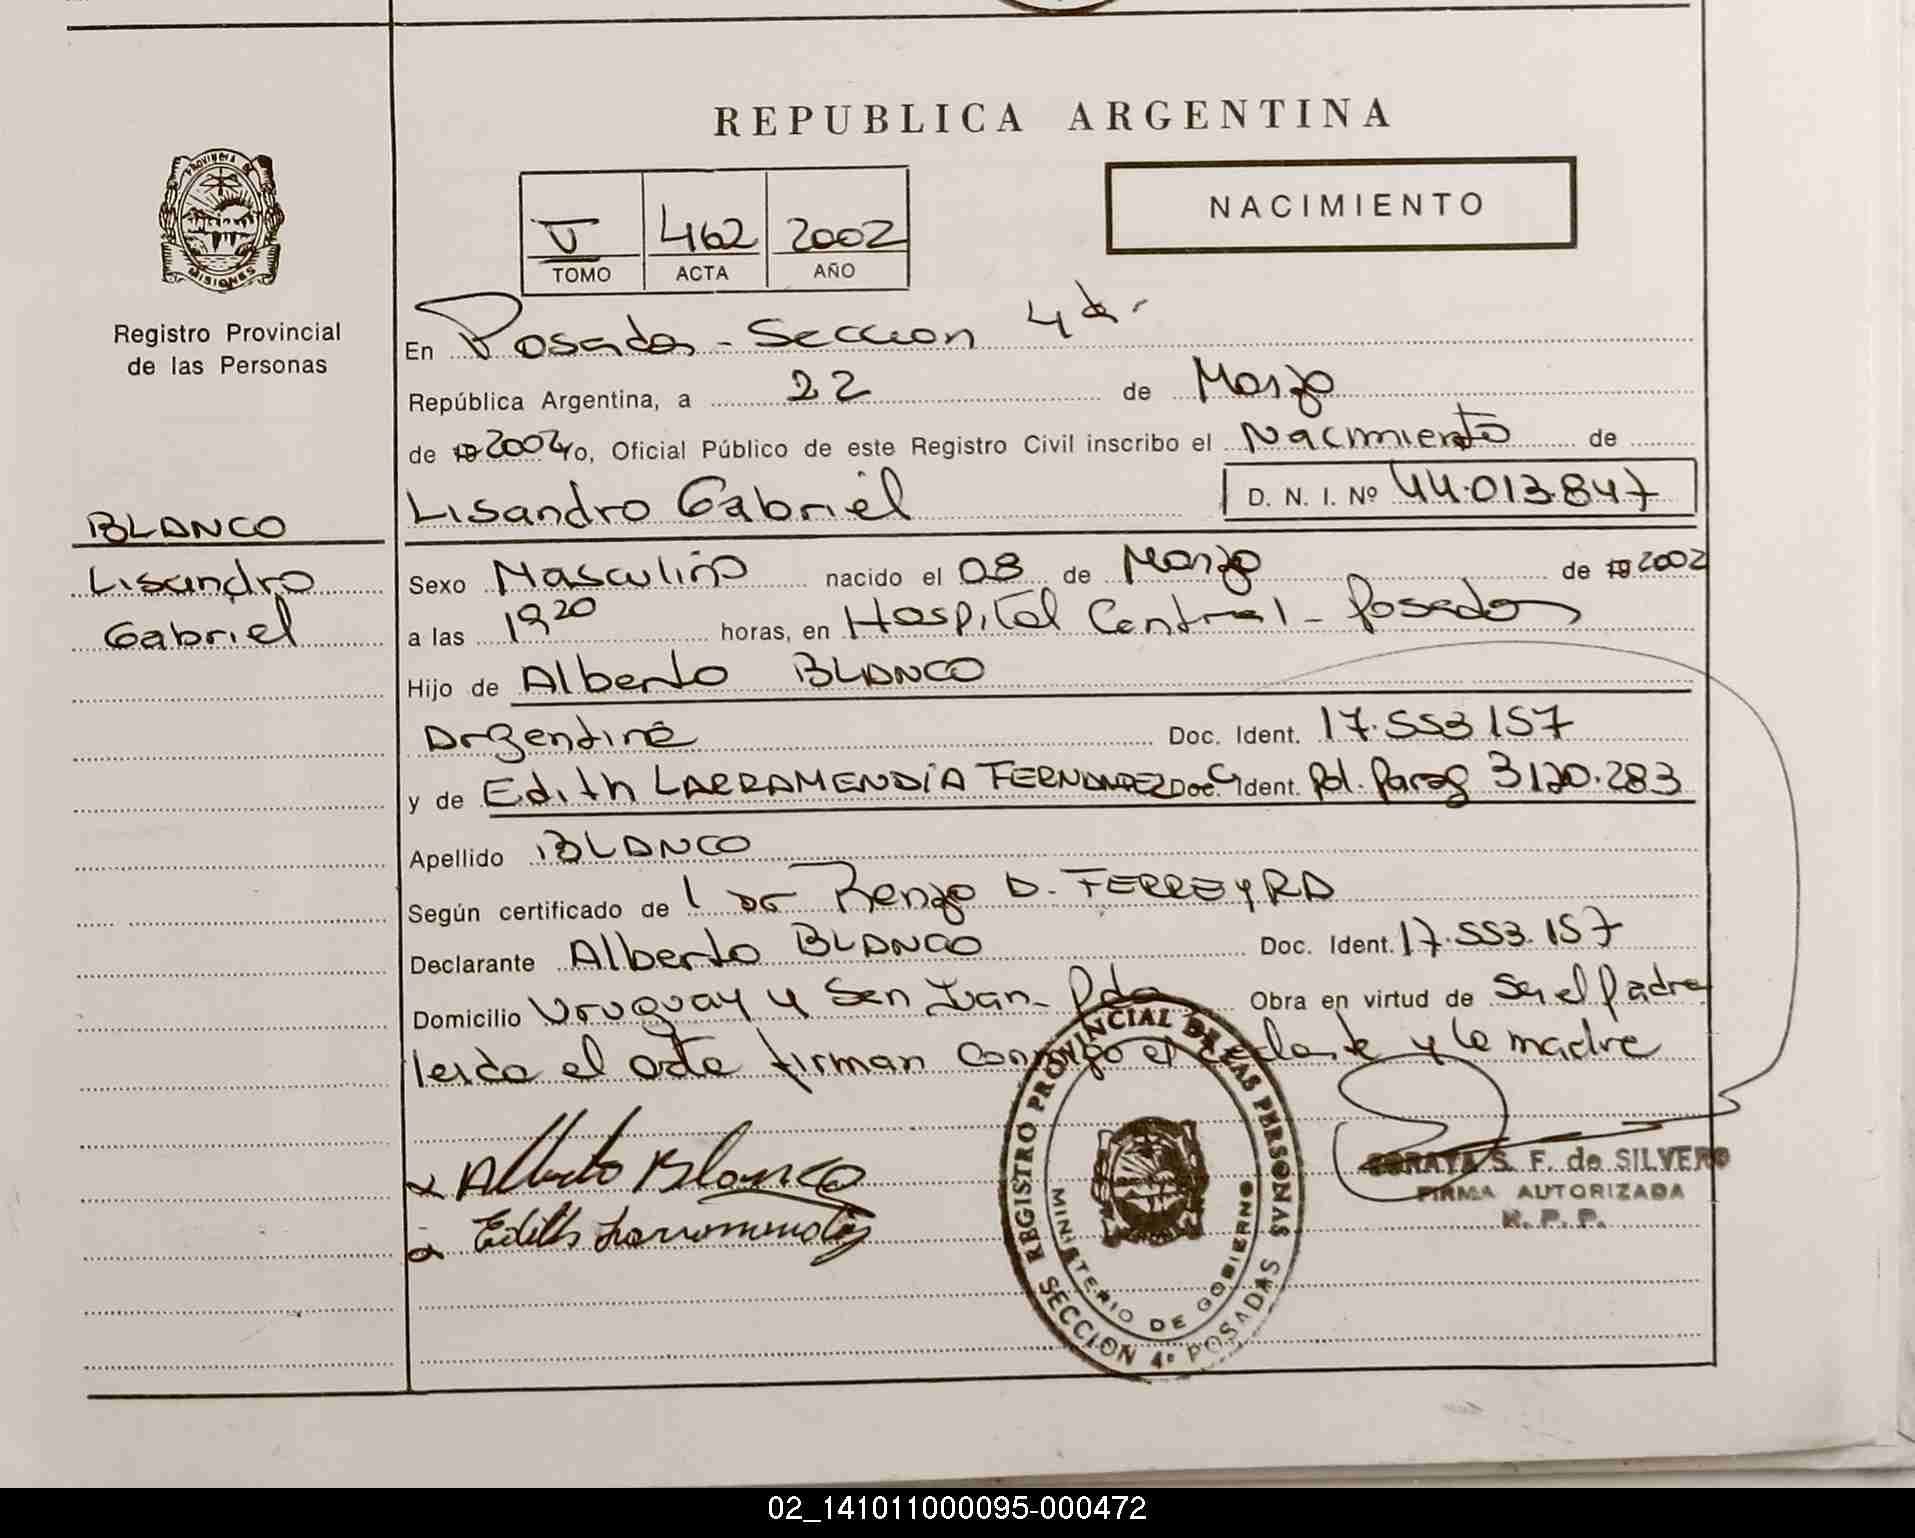 REPUBLICA ARGENTINA
PROVINCIA DE
MISIONES
Registro Provincial
de las Personas
V 462 2002
TOMO ACTA AÑO
NACIMIENTO
En Posadas - Seccion 4ta.
República Argentina, a 22 de Marzo
de 19 2002 yo, Oficial Público de este Registro Civil inscribo el Nacimiento de
BLANCO
Lisandro
Gabriel
Lisandro Gabriel D. N. I. Nº 44.013.847
Sexo Masculino nacido el 08 de Marzo de 19 2002
a las 19 20 horas, en Hospital Central - Posadas
Hijo de Alberto BLANCO
Argentina Doc. Ident. 17.553.157
y de Edith LARRAMENDIA FERNANDEZ Doc. Ident. Pol. Parag 3120.283
Apellido BLANCO
Según certificado de l Dr Renzo D. FERREyRA
Declarante Alberto BLANCO Doc. Ident. 17.553.157
Domicilio Uruguay y San Juan - Pdas Obra en virtud de ser el padre
leida el acta firman conmigo el y la madre
Alberto Blanco
Edith Larramendia
REGISTRO PROVINCIAL DE LAS PERSONAS
MINISTERIO DE GOBIERNO
SECCION 4º POSADAS
SORAYA S. F. de SILVERO
FIRMA AUTORIZADA
R. P. P.
02_141011000095-000472